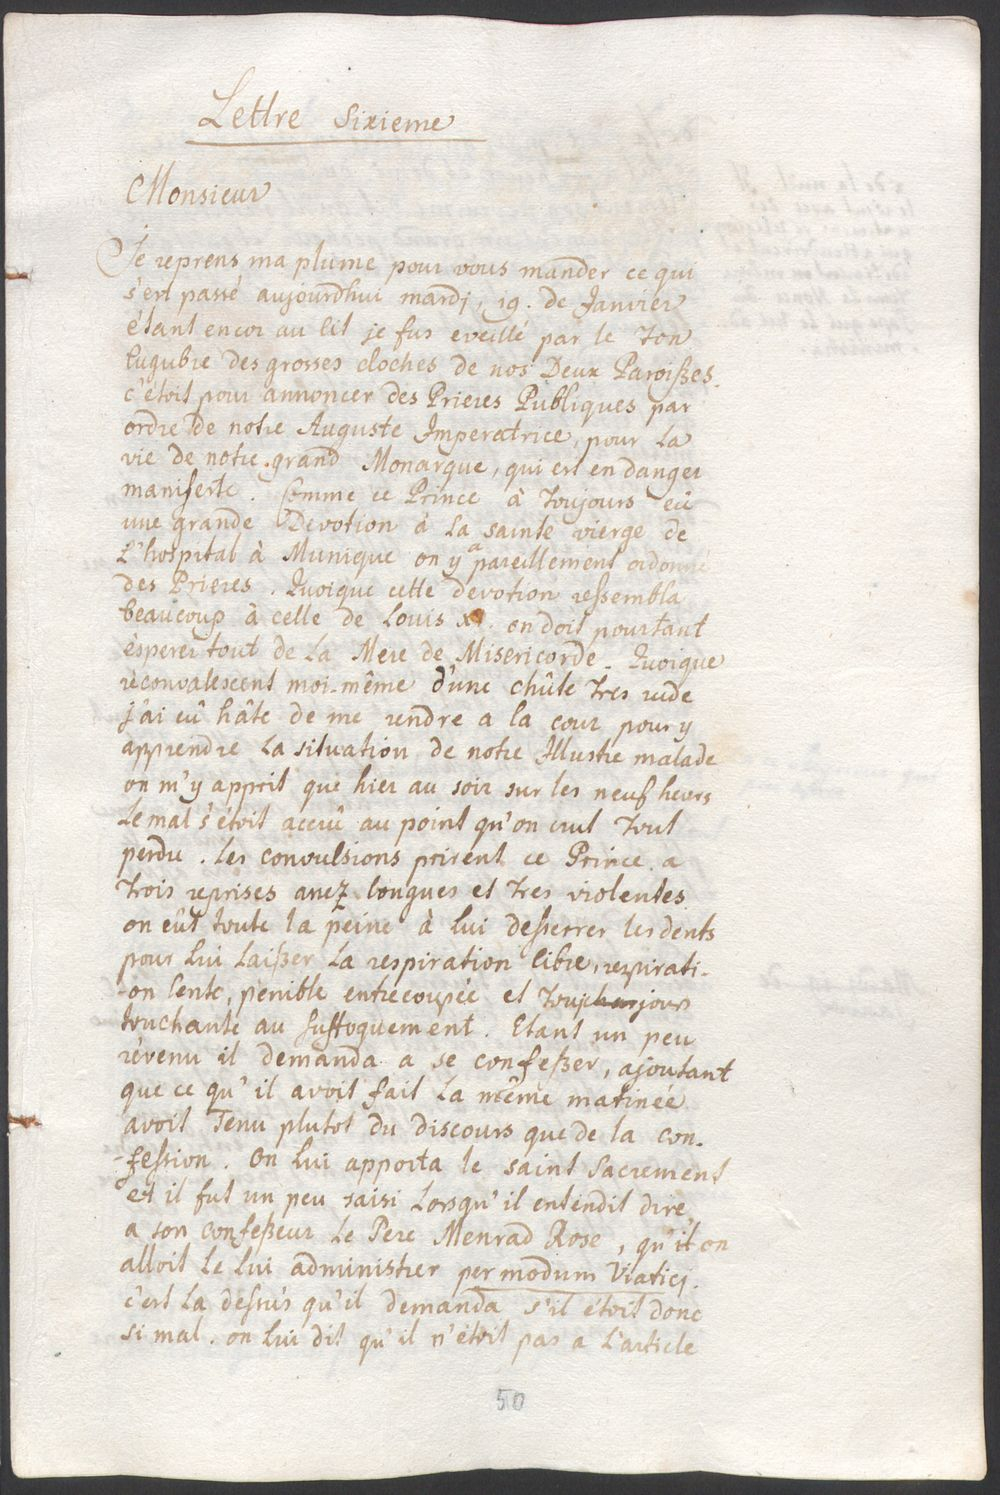 Lettre Sixieme
Monsieur
Je reprens ma plume pour vous mander ce qui
s'est passé aujourdhui mardj, 19. de Janvier
étant encor au lit je fus eveillé par le Ton
lugubre des grosses cloches de nos Deux Paroißes.
c'étoit pour annoncer des Prieres Publiques par
ordre de notre Auguste Imperatrice, pour La
vie de notre grand Monarque, qui est en danger
manifeste. Comme ce Prince à toujours eû
une grande Devotion à La sainte vierge de
L'hospital à Munique on y a pareillement ordonné
des Prieres. Quoique cette devotion reßembla
beaucoup à celle de Louis XI. on doit pourtant
èsperer tout de La Mere de Misericorde. Quoique
rèconvalescent moi-même d'une chûte tres rude
j'ai eû hâte de me rendre a la cour pour y
apprendre La situation de notre Illustre malade
on m'y apprit que hier au soir sur les neuf heurs
Le mal s'étoit accrû au point qu'on crut Tout
perdu. Les convulsions prirent ce Prince a
Trois reprises anez longues et Tres violentes
on eût toute la peine à lui deßerrer les dents
pour Lui Laißer La respiration libre, respirati-
-on lente, penible entrecoupée et toujours
touchante au suffoquement. Etant un peu
rèvenu il demanda a se confeßer, ajoutant
que ce qu'il avoit fait La même matinée
avoit Tenu plutot du discours que de la con-
-feßion. On Lui apporta le saint Sacrement
et il fut un peu saisi Lorsqu'il entendit dire
a son confeßeur Le Pere Menrad Rose, qu'on
alloit le lui administrer per modum Viaticj.
c'est La deßus qu'il demanda s'il étoit donc
si mal. on Lui dit qu'il n'étoit pas a L'article
50